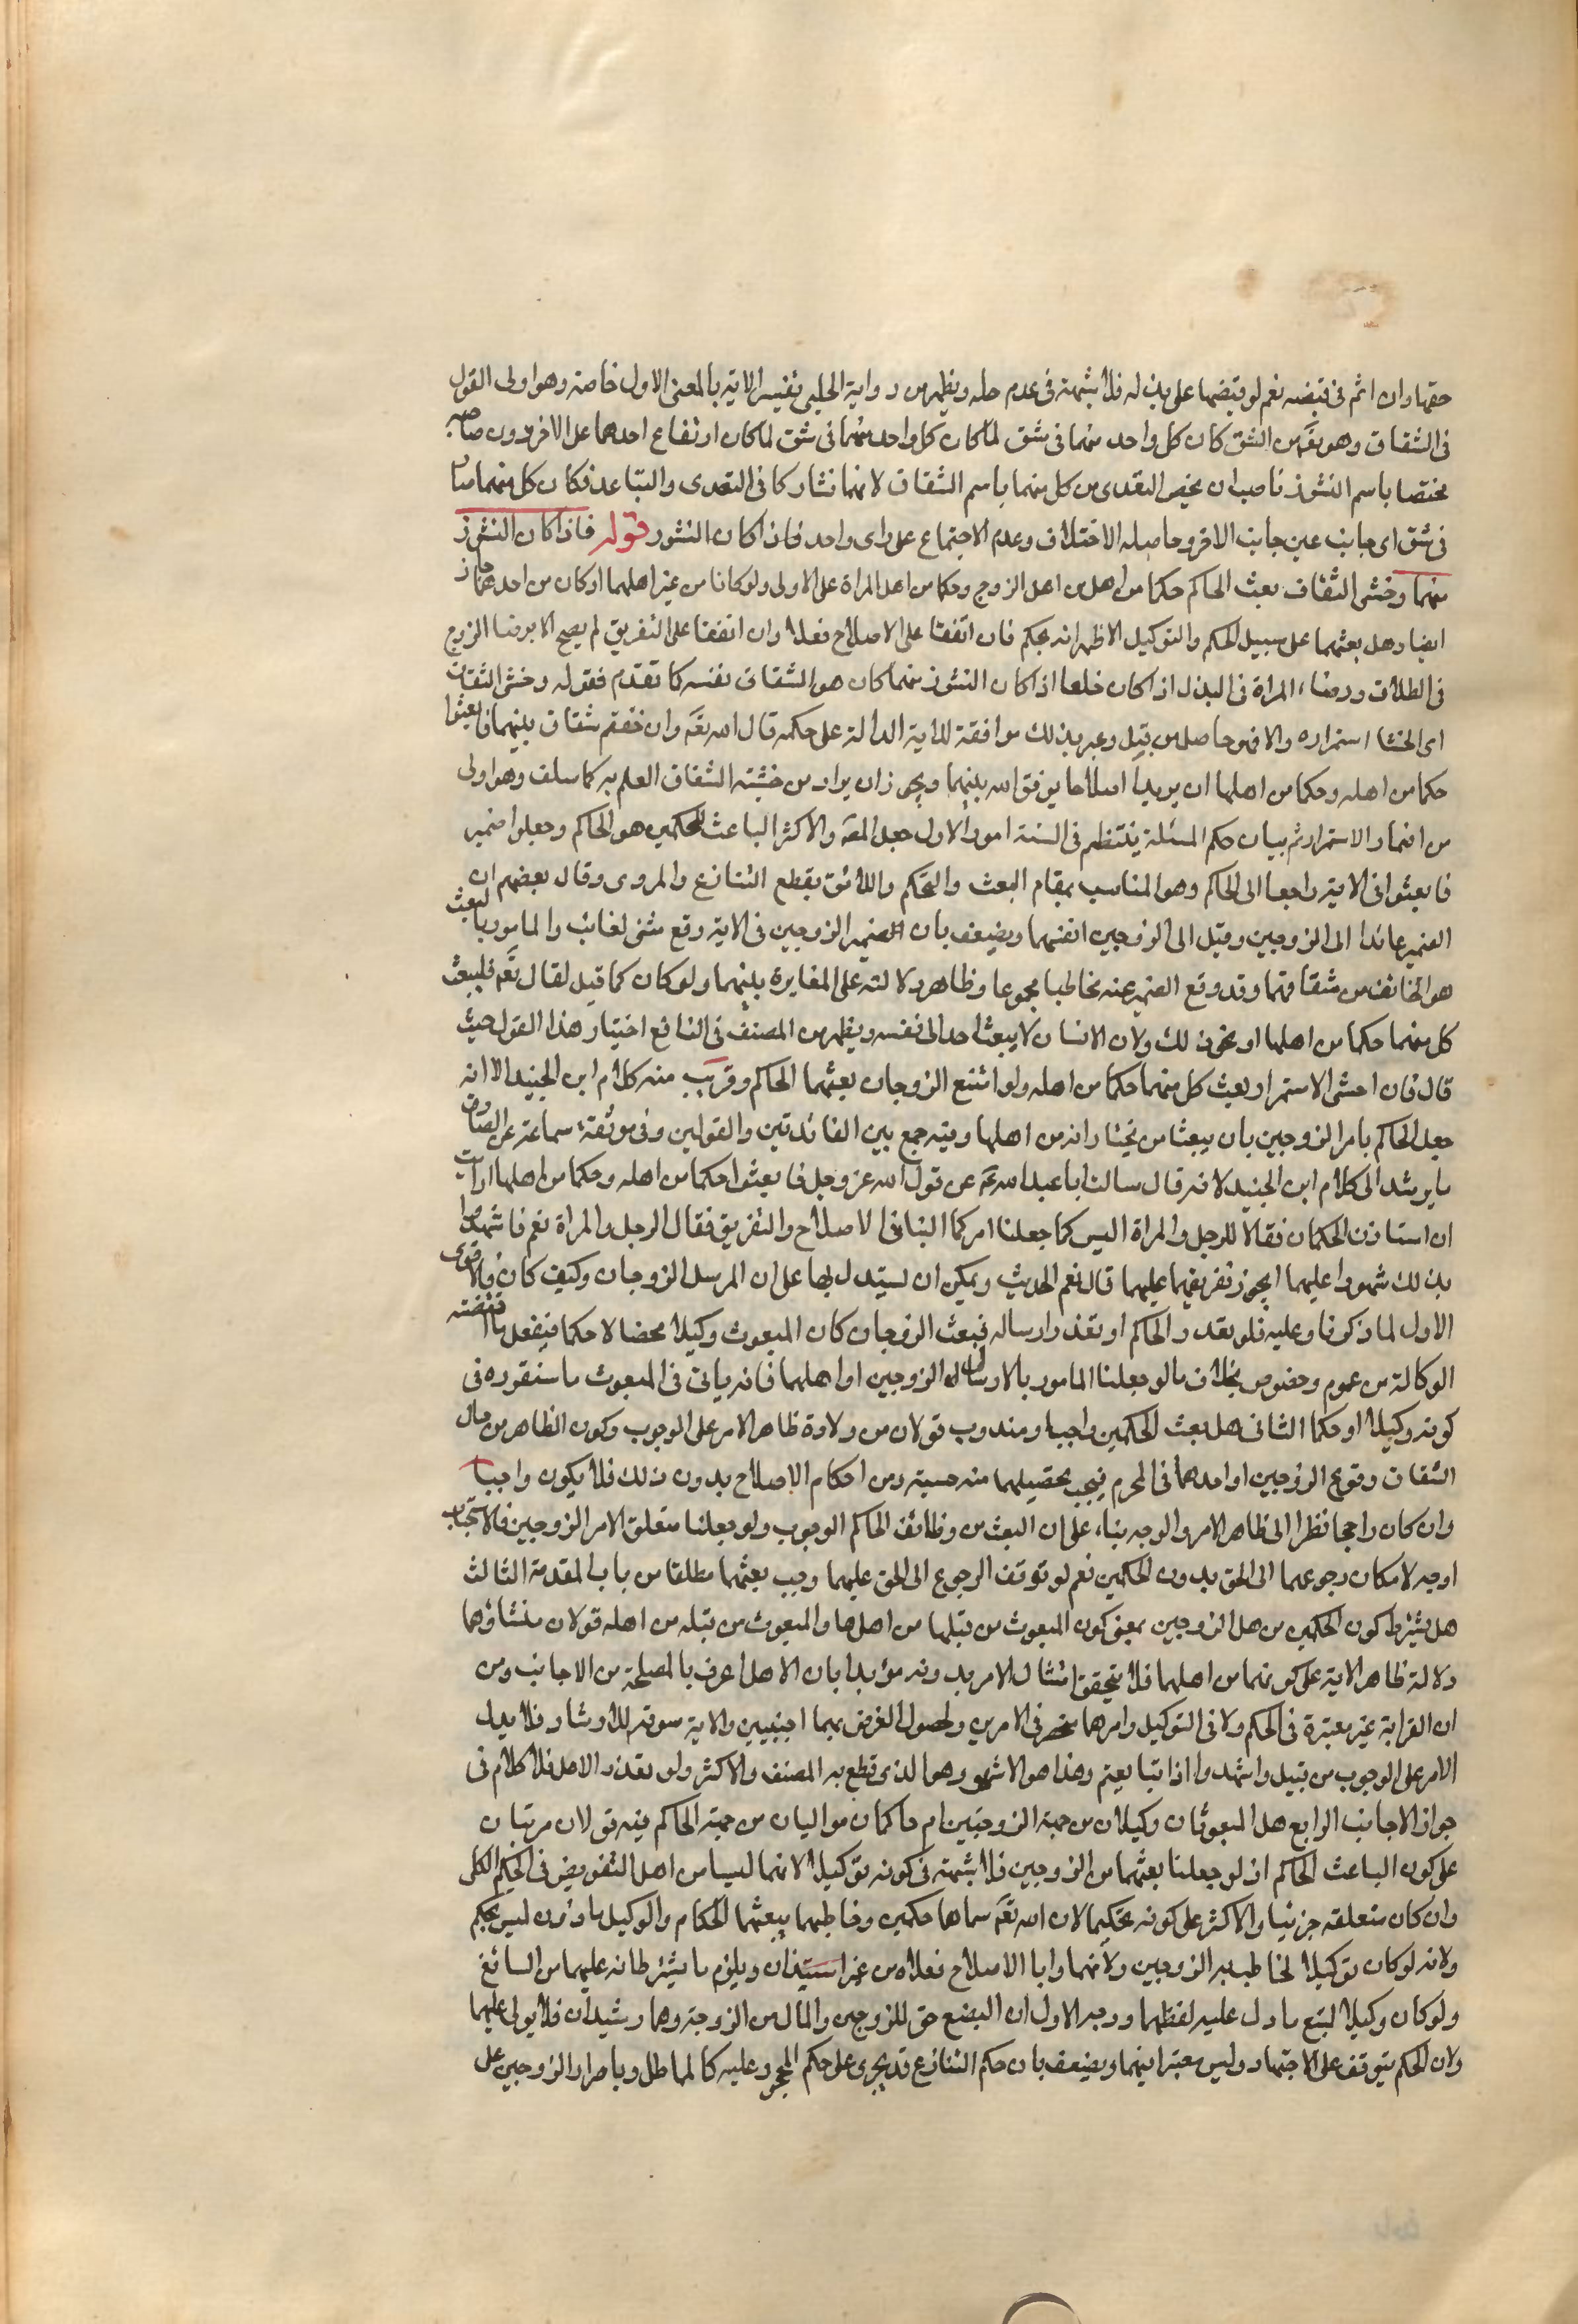 حقها وان اثم فى قبضه نعم لو قبضها على بذله فلا شبهة فى عدم حله ويظهر من رواية الحلبى تفسير الاية بالمعنى الاول خاصة وهو اولى القول
فى الشقاق وهو يقع من الشق كان كل واحد منهما فى شق لما كان كل واحد منهما فى شق لما كان ارتفاع احدهما على الاخر دون صاحبه
مختصا باسم النشوز ناسب ان يخص التعدى من كل منهما باسم الشقاق لانهما تشاركا فى التعدى والتباعد فكان كل منهما صار
فى شق اى جانب عين جانب الاخر وحاصله الاختلاف وعدم الاجتماع على راى واحد فاذا كان النشوز قوله فاذا كان النشوز
منهما وخشى الشقاق بعث الحاكم حكما من اهل من اهل الزوج وحكما من اهل المراة على الاولى ولو كانا من غير اهلهما او كان من احدهما جاز
ايضا وهل بعثهما على سبيل الحكم والتوكيل الاظهر انه تحكم فان اتفقا على الاصلاح فعلا وان اتفقا على التفريق لم يصح الا برضا الزوج
فى الطلاق ورضاء المراة فى البذل اذ كان خلعا اذا كان النشوز منهما كان هو الشقاق نفسه كما تقدم فقوله وخشى الشقاق
اى الخشا استمراره والا فهو حاصل من قبل وعبر بذلك موافقة للاية الدالة على حكمه قال الله تعَ وان خفتم شقاق بينهما فابعثوا
حكما من اهله وحكما من اهلها ان يريدا اصلاحا يوفق الله بينهما ويجوز ان يراد من خشية الشقاق العلم به كما سلف وهو اولى
من اضمار الاستمرار ثم بيان حكم المسئلة ينتظم فى السنة امور الاول جعل المصَ والاكثر الباعث للحكمين هو الحاكم وجعلوا ضمير
فابعثوا فى الاية راجعا الى الحاكم وهو المناسب بمقام البعث والتحكم واللائق بقطع التنازع والمروى وقال بعضهم ان
الضمير عائدا الى الزوجين وقيل الى الزوجين انفسهما ويضعف بان الضمير الزوجين فى الاية وقع مثنى لغائب والمامور بالبعث
هو الخائف من شقاقهما وقد وقع الضمير عنه مخاطبا مجموعا وظاهر دلالته على المغايرة بينهما ولو كان كما قيل لقال تعَ فليبعث
كل منهما حكما من اهلها او نحو ذلك ولان الانسان لا يبعث احد الى نفسه ويظهر من المصنف فى النافع اختيار هذا القول حيث
قال فان اخشى الاستمرار بعث كل منهما حكما من اهله ولو امتنع الزوجان بعثهما الحاكم وقريب منه كلام ابن الجنيد الا انه
جعل الحاكم يامر الزوجين بان يبعثا من يختارانه من اهلها وفيه جمع بين الفائدتين والقولين وفى موثقة سماعة عن الصادق
ما يرشد الى كلام ابن الجنيد لانه قال سالت ابا عبد الله عَ عن قول الله عز وجل فابعثوا حكما من اهله وحكما من اهلها ارايت
ان استاذن الحكمان فقالا للرجل والمراة اليس كما جعلنا امركما الينا فى الاصلاح والتفريق فقال الرجل والمراة نعم فاشهدوا
بذلك شهودا عليهما ايجوز تفريقهما عليهما قال نعم الحديث ويمكن ان يستدل بها على ان المرسل الزوجان وكيف كان فالاقوى
الاول لما ذكرنا وعليه فلو تعذر الحاكم او تعذر ارساله فبعث الزوجان كان المبعوث وكيلا محضا لا حكما فيفعل ما اقتضته
الوكالة من عموم وخصوص بخلاف ما لو جعلنا المامور بالارسال له الزوجين او اهلهما فانه ياتى فى المبعوث ما سنقرره فى
كونه وكيلا او حكما الثانى هل بعث الحكمين واجب او مندوب قولان من دلالة ظاهر الامر على الوجوب وكون الظاهر من حال
الشقاق وقوع الزوجين او احدهما فى المحرم فيجب تخليصهما منه حسبة ومن احكام الاصلاح بدون ذلك فلا يكون واجبا
وان كان راجحا نظرا الى ظاهر الامر والوجه بناء على ان البعث من وظائف الحاكم الوجوب ولو جعلنا متعلق الامر الزوجين فالاستحباب
اوجه لامكان رجوعهما الى الحق بدون الحكمين نعم لو توقف الرجوع الى الحق عليهما وجب بعثهما مطلقا من باب المقدمة الثالث
هل يشترط كون الحكمين من هل الزوجين بمعنى كون المبعوث من قبلها من اهلها والمبعوث من قبله من اهله قولان منشاؤهما
دلالة ظاهر الاية على كونهما من اهلهما فلا يتحقق امتثال الامر بدونه مؤيدا بان الاهل اعرف بالمصلحة من الاجانب ومن
ان القرابة غير معتبرة فى الحكم ولا فى التوكيل وامرهما منحصر فى الامرين ولحصول الغرض بهما اجنبيين والاية مسوقة للارشاد فلا يدل
الامر على الوجوب من قبيل واشهدوا اذا تبايعتم وهذا هو الاشهر وهو الذى قطع به المصنف والاكثر ولو تعذر الاهل فلا كلام فى
جواز الاجانب الرابع هل المبعوثان وكيلان من جهة الزوجين ام حاكمان مواليان من جهة الحاكم فيه قولان مرتبان
على كون الباعث الحاكم اذ لو جعلنا بعثهما من الزوجين فلا شبهة فى كونه توكيلا لانهما ليسا من اهل التفويض فى الحكم الكلى
وان كان متعلقه جزئيا والاكثر على كونه تحكيما لان الله تعَ سماها حكمين وخاطبهما ببعثهما الحكام والوكيل ماذون ليس بحكم
ولانه لو كان توكيلا لخاطب به الزوجين ولانهما وايا الاصلاح فعلاه من غير استيذان ويلزم ما يشترطانه عليهما من السائغ
ولو كان وكيلا لتبع ما دل عليه لفظهما ووجه الاول ان البضع حق للزوج والمال من الزوجة وهما رشيدان فلا يولى عليهما
ولان الحكم يتوقف على الاجتهاد وليس معتبرا فيهما ويضعف بان حكم التنازع قد يجرى على حكم المحجور عليه كالمماطل وباصرار الزوجين على